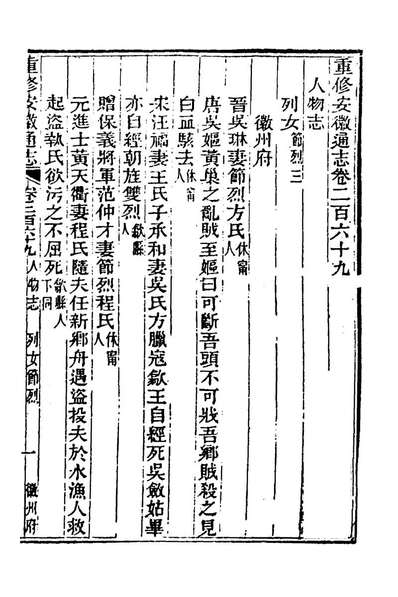 重修安徽通志卷二百六十九
人物志
列女節烈三
徽州府
晉吳琳妻節烈方氏休甯人
唐吳嫗黃巢之亂賊至嫗曰可斷吾頭不可戕吾鄉賊殺之見
白血駭去休甯人
宋汪禧妻王氏子承和妻吳氏方臘寇歙王自經死吳斂姑畢
亦自經朝旌雙烈歙縣人
贈保義將軍范仲才妻節烈程氏休甯人
元進士黃天衢妻程氏隨夫任新鄉舟遇盜投夫於水漁人救
起盜執氏欲污之不屈死歙縣人下同
重修安徽通志 卷二百六九 人物志 列女節烈 一 徽州府